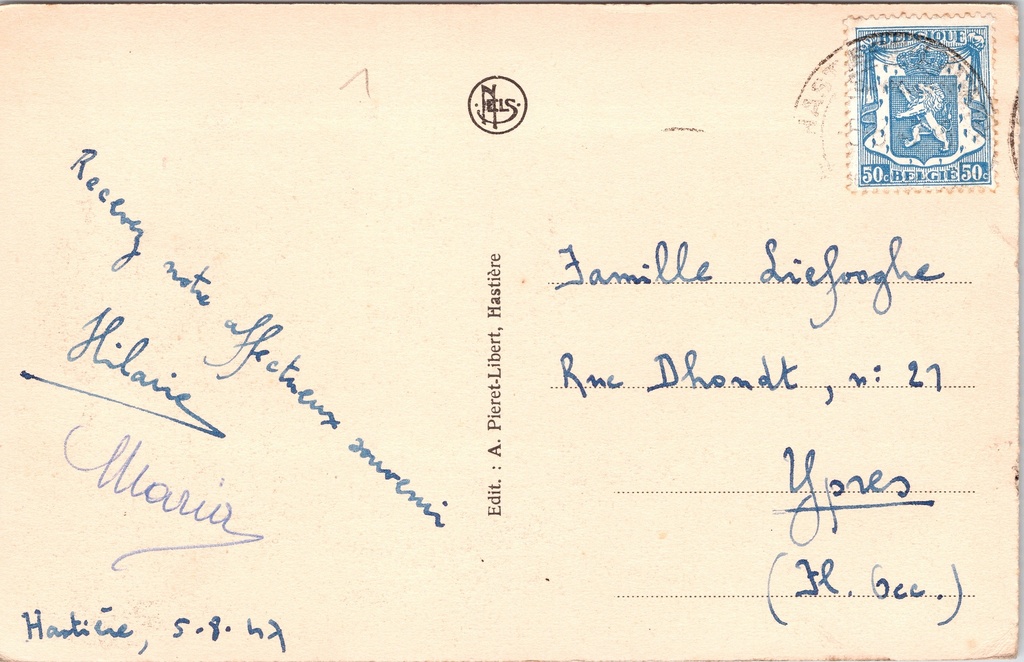 NELS
BELGIQUE
50c BELGIË 50c
HASTIÈRE
Recevez notre affectueux souvenir
Hilaire
Maria
Hastière, 5.8.47
Edit. : A. Pieret-Libert, Hastière
Famille Liefooghe
Rue Dhondt, n: 21
Ypres
(Fl. Occ.)
1